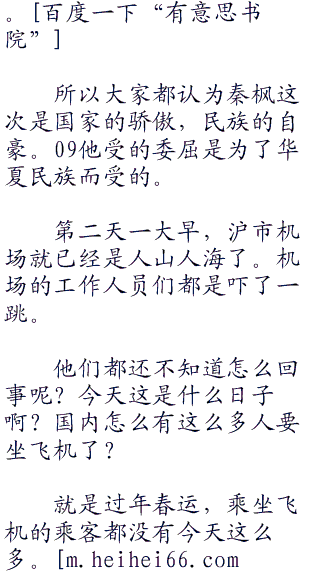 。[百度一下“有意思书
院”]
所以大家都认为秦枫这
次是国家的骄傲，民族的自
豪。09他受的委屈是为了华
夏民族而受的。
第二天一大早，沪市机
场就已经是人山人海了。机
场的工作人员们都是吓了一
跳。
他们都还不知道怎么回
事呢？今天这是什么日子
啊？国内怎么有这么多人要
坐飞机了？
就是过年春运，乘坐飞
机的乘客都没有今天这么
多。[m.heihei66.com